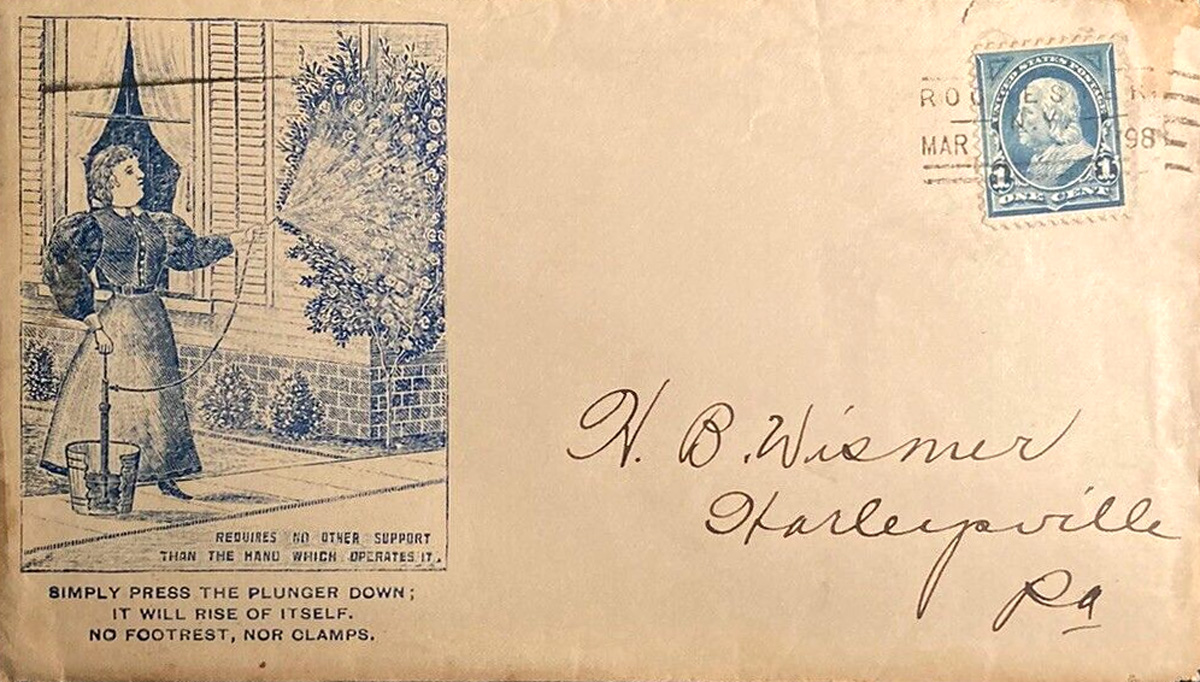 REQUIRES NO OTHER SUPPORT
THAN THE HAND WHICH OPERATES IT.
SIMPLY PRESS THE PLUNGER DOWN;
IT WILL RISE OF ITSELF.
NO FOOTREST, NOR CLAMPS.
N.Y.
MAR
98
UNITED STATES POSTAGE
1 1
ONE CENT
H. B. Wismer
Harleysville
Pa